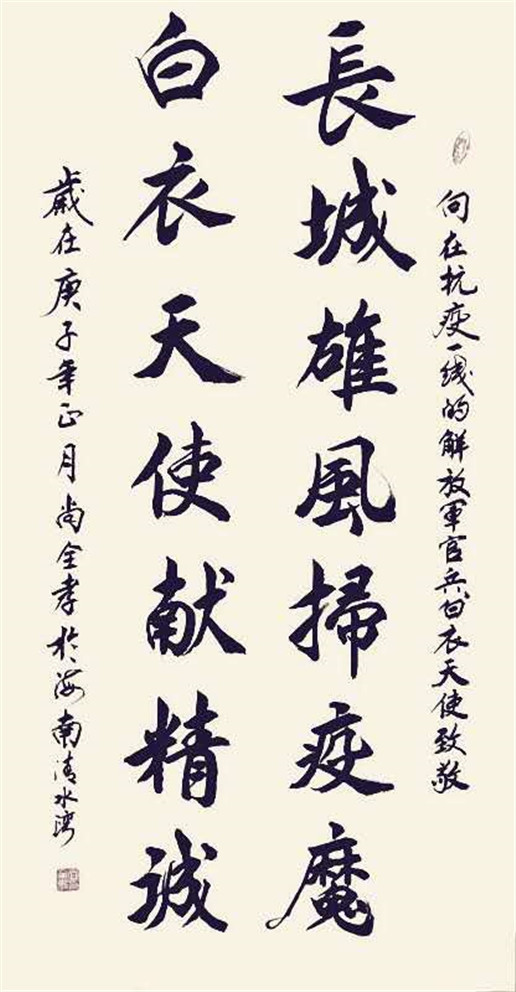 向在抗疫一线的解放軍官兵白衣天使致敬
長城雄風掃疫魔
白衣天使献精誠
歲在庚子年正月尚全孝於海南清水湾